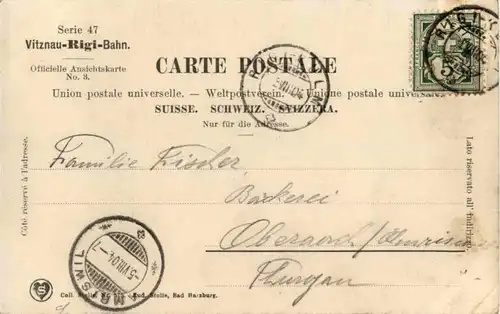 Serie 47
Vitznau-Rigi-Bahn.
Officielle Ansichtskarte
No. 3.
CARTE POSTALE
Union postale universelle. — Weltpostverein. — Unione postale universale.
SUISSE. SCHWEIZ. SVIZZERA.
Nur für die Adresse.
Côté réservé à l'adresse.
Lato riservato all' indirizzo.
Familie Fischer
Bäckerei
Oberaach
Thurgau
-5.VIII.04.-7
Stolle, Bad Harzburg.